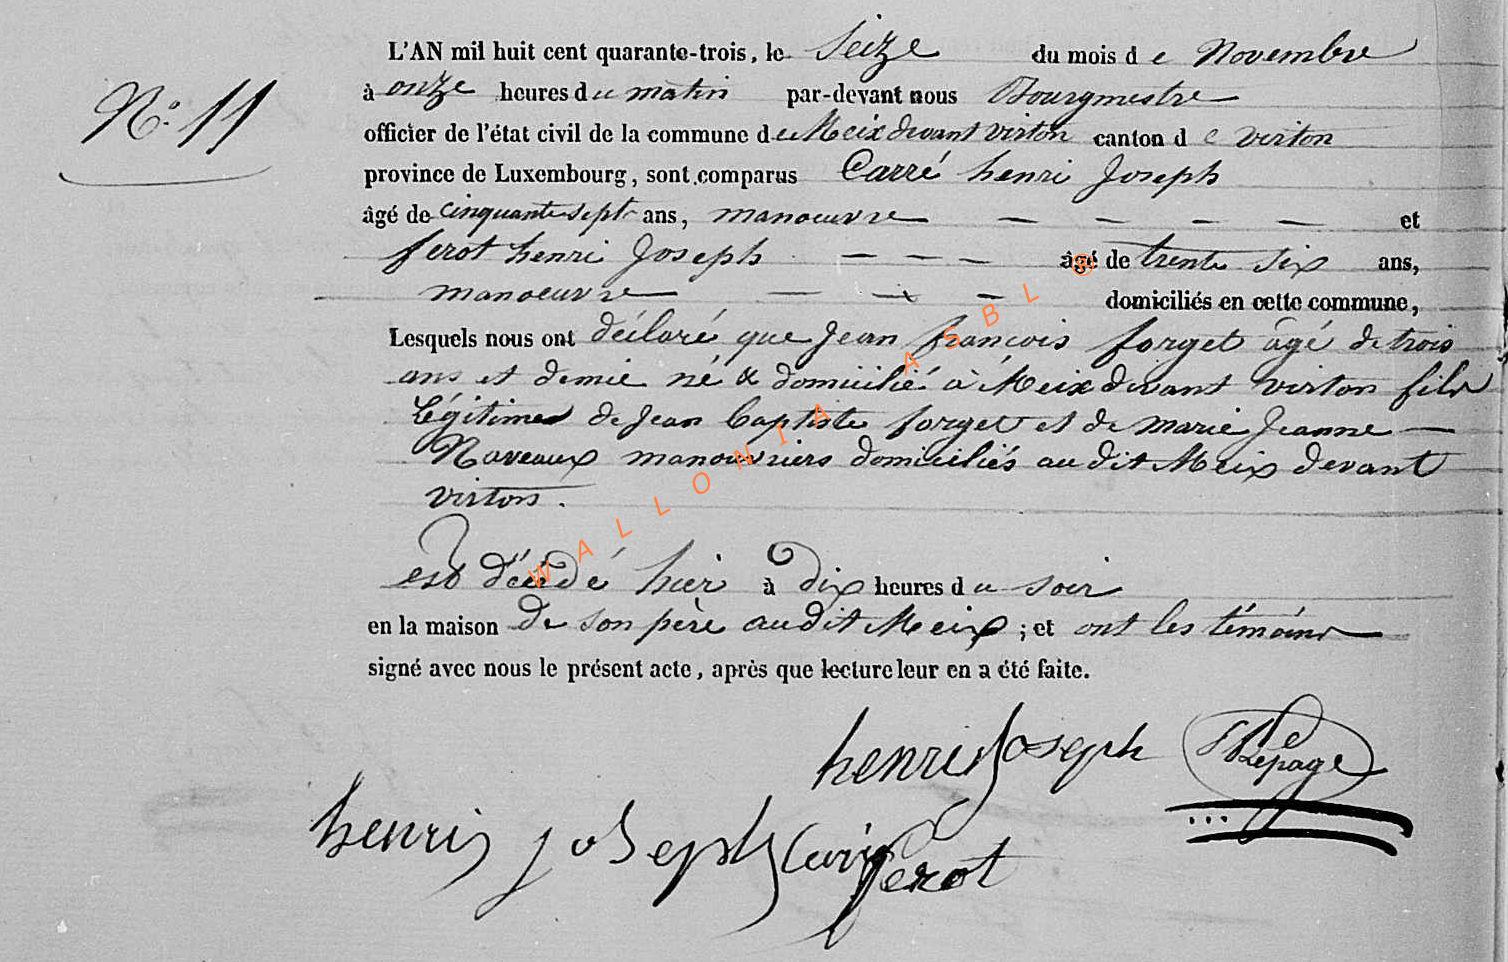 N.° 11
L'AN mil huit cent quarante-trois, le Seize du mois de Novembre
à onze heures du matin par-devant nous Bourgmestre
officier de l'état civil de la commune de Meix devant virton canton de virton
province de Luxembourg, sont comparus Carré henri Joseph
âgé de cinquante sept ans, manoeuvre — — — — et
ferot henri Joseph — — — âgé de trente six ans,
manoeuvre — — — domiciliés en cette commune,
Lesquels nous ont déclaré que Jean françois forget âgé de trois
ans et demie né & domicilié à Meix devant virton fils
Légitime de Jean baptiste forget et de marie Jeanne —
Naveaux manouvriers domiciliés au dit Meix devant
virton.
est décédé hier à dix heures du soir
en la maison de son père audit Meix ; et ont les témoins
signé avec nous le présent acte, après que lecture leur en a été faite.
henri Joseph Lepage
henri joseph Carré ferot
WALLONIA ASBL ®